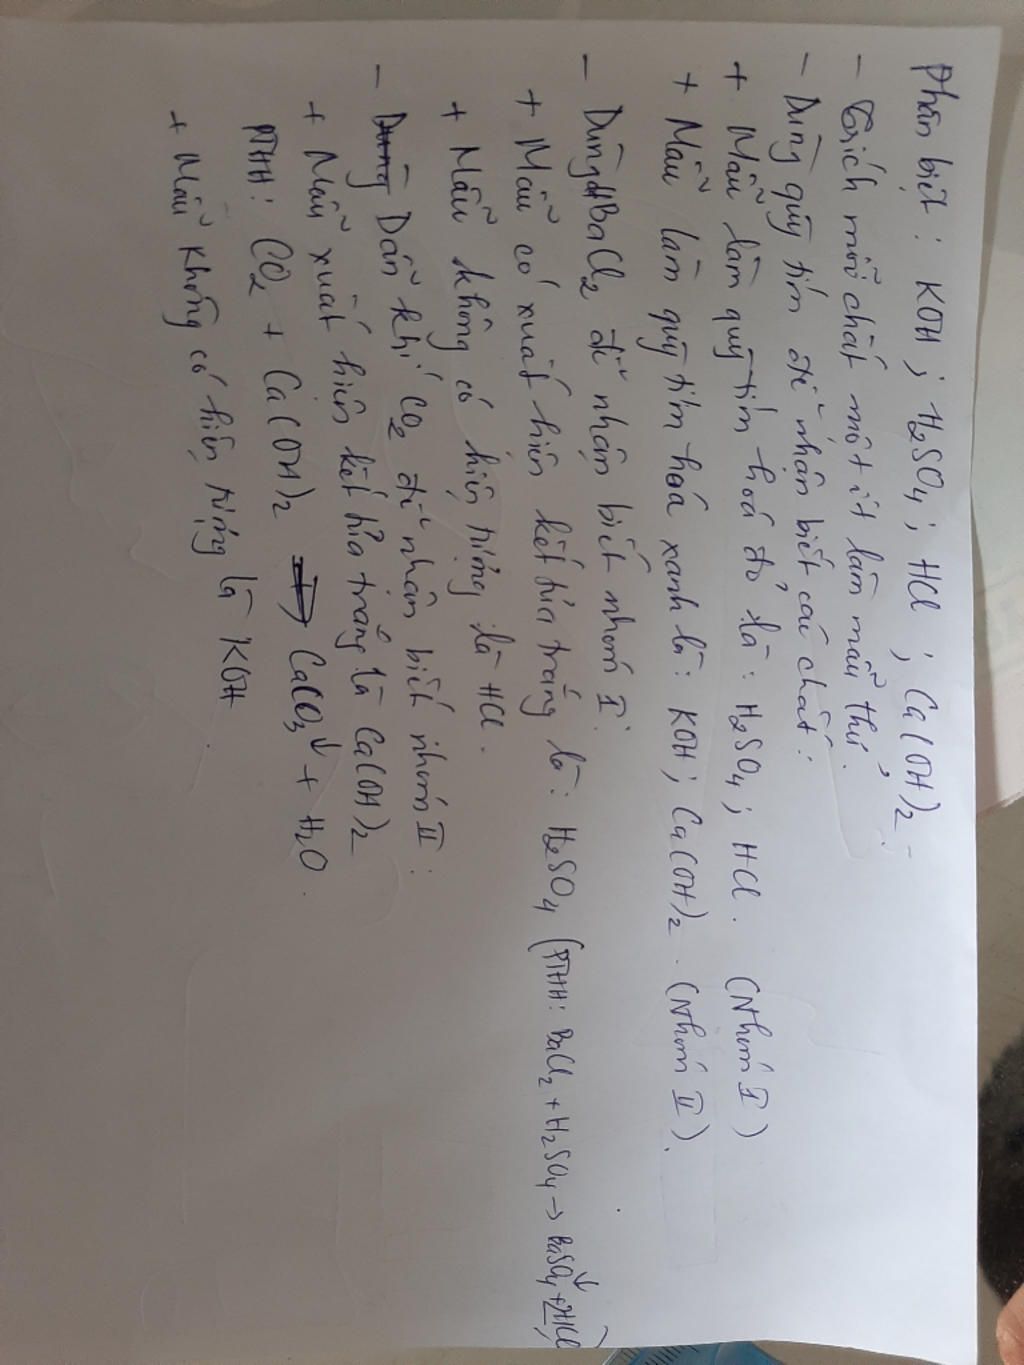 Phân biệt : KOH ; H₂SO₄ ; HCl ; Ca(OH)₂ :
- Trích mỗi chất một ít làm mẫu thử.
- Dùng quỳ tím để nhận biết các chất :
+ Mẫu làm quỳ tím hoá đỏ là : H₂SO₄ ; HCl. (Nhóm I)
+ Mẫu làm quỳ tím hoá xanh là : KOH ; Ca(OH)₂. (Nhóm II).
- Dùng BaCl₂ để nhận biết nhóm I.
+ Mẫu có xuất hiện kết tủa trắng là : H₂SO₄ (PTHH: BaCl₂ + H₂SO₄ → BaSO₄↓ + 2HCl)
+ Mẫu không có hiện tượng là HCl.
- Dẫn khí CO₂ để nhận biết nhóm II :
+ Mẫu xuất hiện kết tủa trắng là Ca(OH)₂
PTHH : CO₂ + Ca(OH)₂ → CaCO₃↓ + H₂O.
+ Mẫu không có hiện tượng là KOH